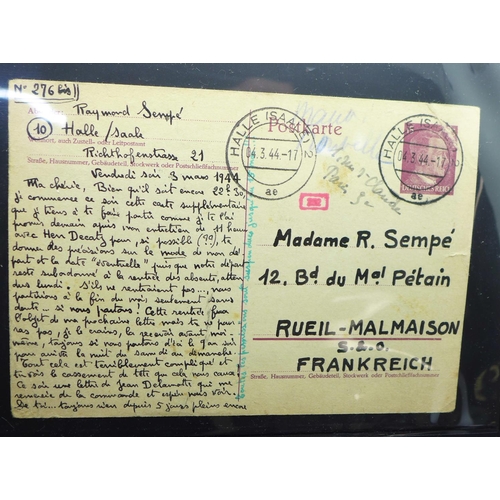 N° 276 bis))
Raymond Sempé
(10) Halle/Saale
Wohnort, auch Zustell- oder Leitpostamt
Richthofenstrasse 21
Straße, Hausnummer, Gebäudeteil, Stockwerk oder Postschließfachnummer
Vendredi soir 3 mars 1944
Ma chérie, Bien qu'il soit encore 22 h 30,
je commence ce soir cette carte supplémentaire
que je tiens à te faire partir comme je te l'ai
promis demain après mon entretien de 11 heures
avec Herr Decatz pour, si possible (??), te
donner des précisions sur le mode de mon dé-
part et la date "éventuelle", puisque notre départ
reste subordonné à la rentrée des absents, atten-
dus lundi. S'ils ne rentraient pas..., nous
partirions à la fin du mois seulement sans
doute ... si nous partons! Cette rentrée fera
l'objet de ma prochaine lettre mais tu ne pour-
ras pas, je le crains, la recevoir avant moi-
même, toujours si nous partons d'ici le 9 au soir
pour Paris la nuit du samedi au dimanche.
Tout cela est terriblement compliqué et
tu vois le cassement de tête que cela nous cause.
Ce soir une lettre de Jean Delamotte qui me
remercie de la commande et espère nous voir.
toujours rien depuis 5 jours pleins encore
Postkarte
HALLE (SAALE) 2
04.3.44.-17
ae
HALLE (SAALE) 2
04.3.44.-17
ae
DEUTSCHES REICH
Madame R. Sempé
12, Bd du Mal Pétain
RUEIL-MALMAISON
S.&O.
FRANKREICH
Straße, Hausnummer, Gebäudeteil, Stockwerk oder Postschließfachnummer